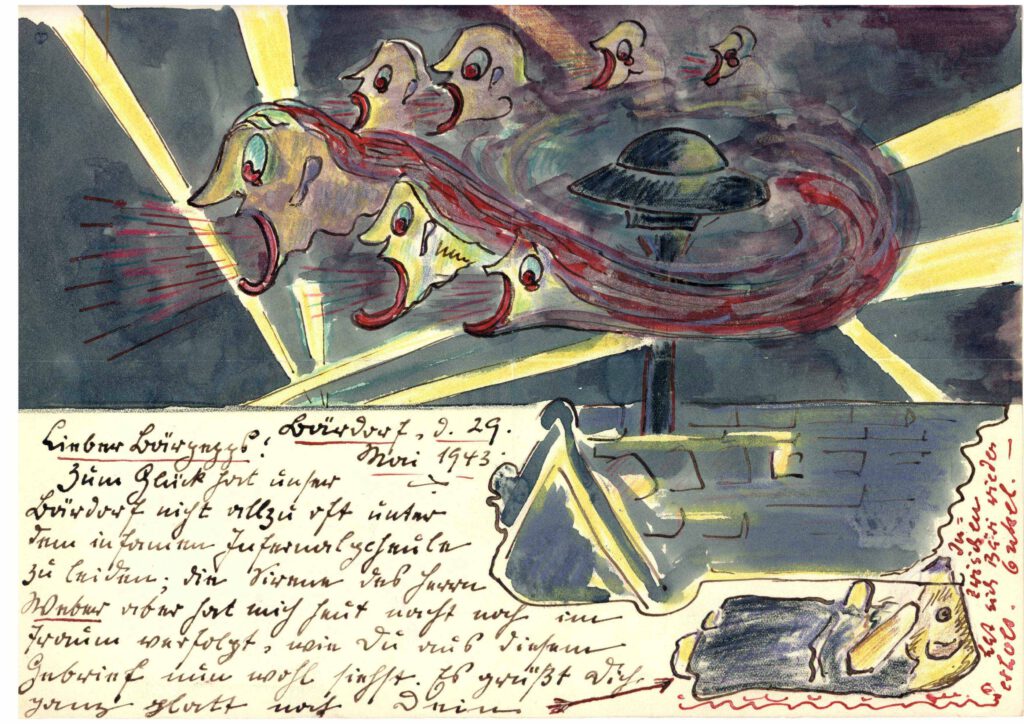 Bärdorf, d. 29.
Mai 1943.
Lieber
Zum Glück hat unser
Bärdorf nicht allzu oft unter
dem infamen Infernalgeheule
zu leiden; die Sirene des Herrn
Weber aber hat mich heut nacht noch im
Traum verfolgt, wie Du aus diesem
Gebrief nun wohl siehst. Es grüßt Dich
ganz platt noch Dein
In
zwischen
hat sich Bäri wieder
erholt.